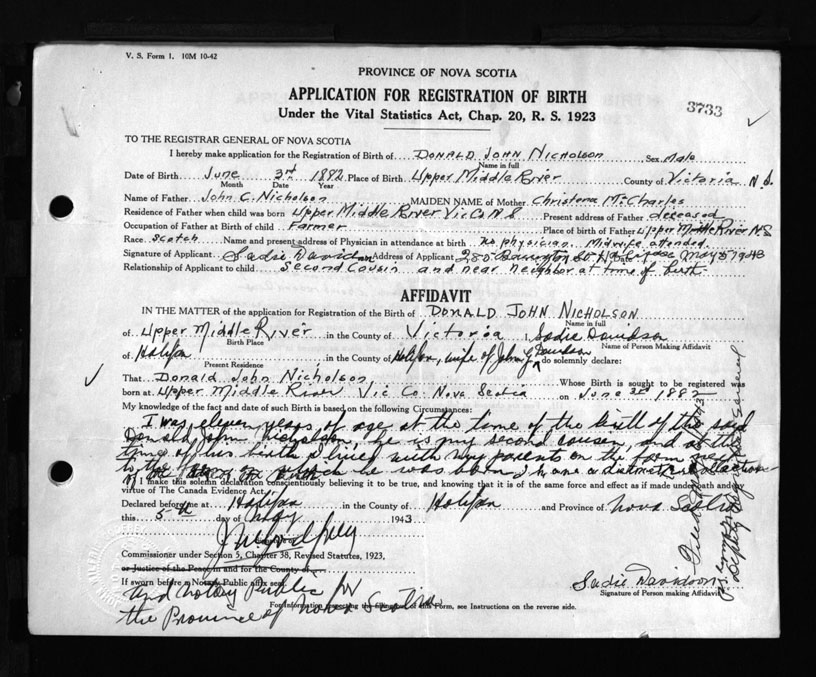 V. S. Form 1. 10M 10-42
PROVINCE OF NOVA SCOTIA
APPLICATION FOR REGISTRATION OF BIRTH
3733
Under the Vital Statistics Act, Chap. 20, R. S. 1923
TO THE REGISTRAR GENERAL OF NOVA SCOTIA
I hereby make application for the Registration of Birth of Donald John Nicholson Sex Male
Name in full
Date of Birth June 3rd 1882 Place of Birth Upper Middle River County of Victoria N.S.
Month Date Year
Name of Father John C. Nicholson MAIDEN NAME of Mother Christena McCharles
Residence of Father when child was born Upper Middle River Vic Co N S Present address of Father deceased
Occupation of Father at Birth of child Farmer Place of birth of Father Upper Middle River N S
Race Scotch Name and present address of Physician in attendance at birth no physician. Midwife attended
Signature of Applicant Sadie Davidson Address of Applicant 285 Barrington St Halifax Date May 5 1943
Relationship of Applicant to child Second Cousin and near neighbor at time of birth.
AFFIDAVIT
IN THE MATTER of the application for Registration of the Birth of Donald John Nicholson
Name in full
of Upper Middle River in the County of Victoria, I, Sadie Davidson
Birth Place Name of Person Making Affidavit
of Halifax in the County of Halifax, wife of John G Davidson do solemnly declare:
Present Residence
That Donald John Nicholson Whose Birth is sought to be registered was
born at Upper Middle River Vic Co. Nova Scotia on June 3rd 1882
My knowledge of the fact and date of such Birth is based on the following Circumstances:
I was eleven years of age at the time of the birth of the said
Donald John Nicholson, he is my second cousin, and at the
time of his birth I lived with my parents on the farm next
to the farm on which he was born, I have a distinct recollection
of the birth
I make this solemn declaration conscientiously believing it to be true, and knowing that it is of the same force and effect as if made under oath and by
virtue of The Canada Evidence Act.
Declared before me at Halifax in the County of Halifax and Province of Nova Scotia
this 5th day of May 1943
Commissioner under Section 5, Chapter 38, Revised Statutes, 1923,
or Justice of the Peace in and for the County of
If sworn before a Notary Public affix seal.
and Notary Public for
the Province of Nova Scotia
Sadie Davidson
Signature of Person making Affidavit
For Information respecting the filling out of this Form, see Instructions on the reverse side.
Deputy Registrar General